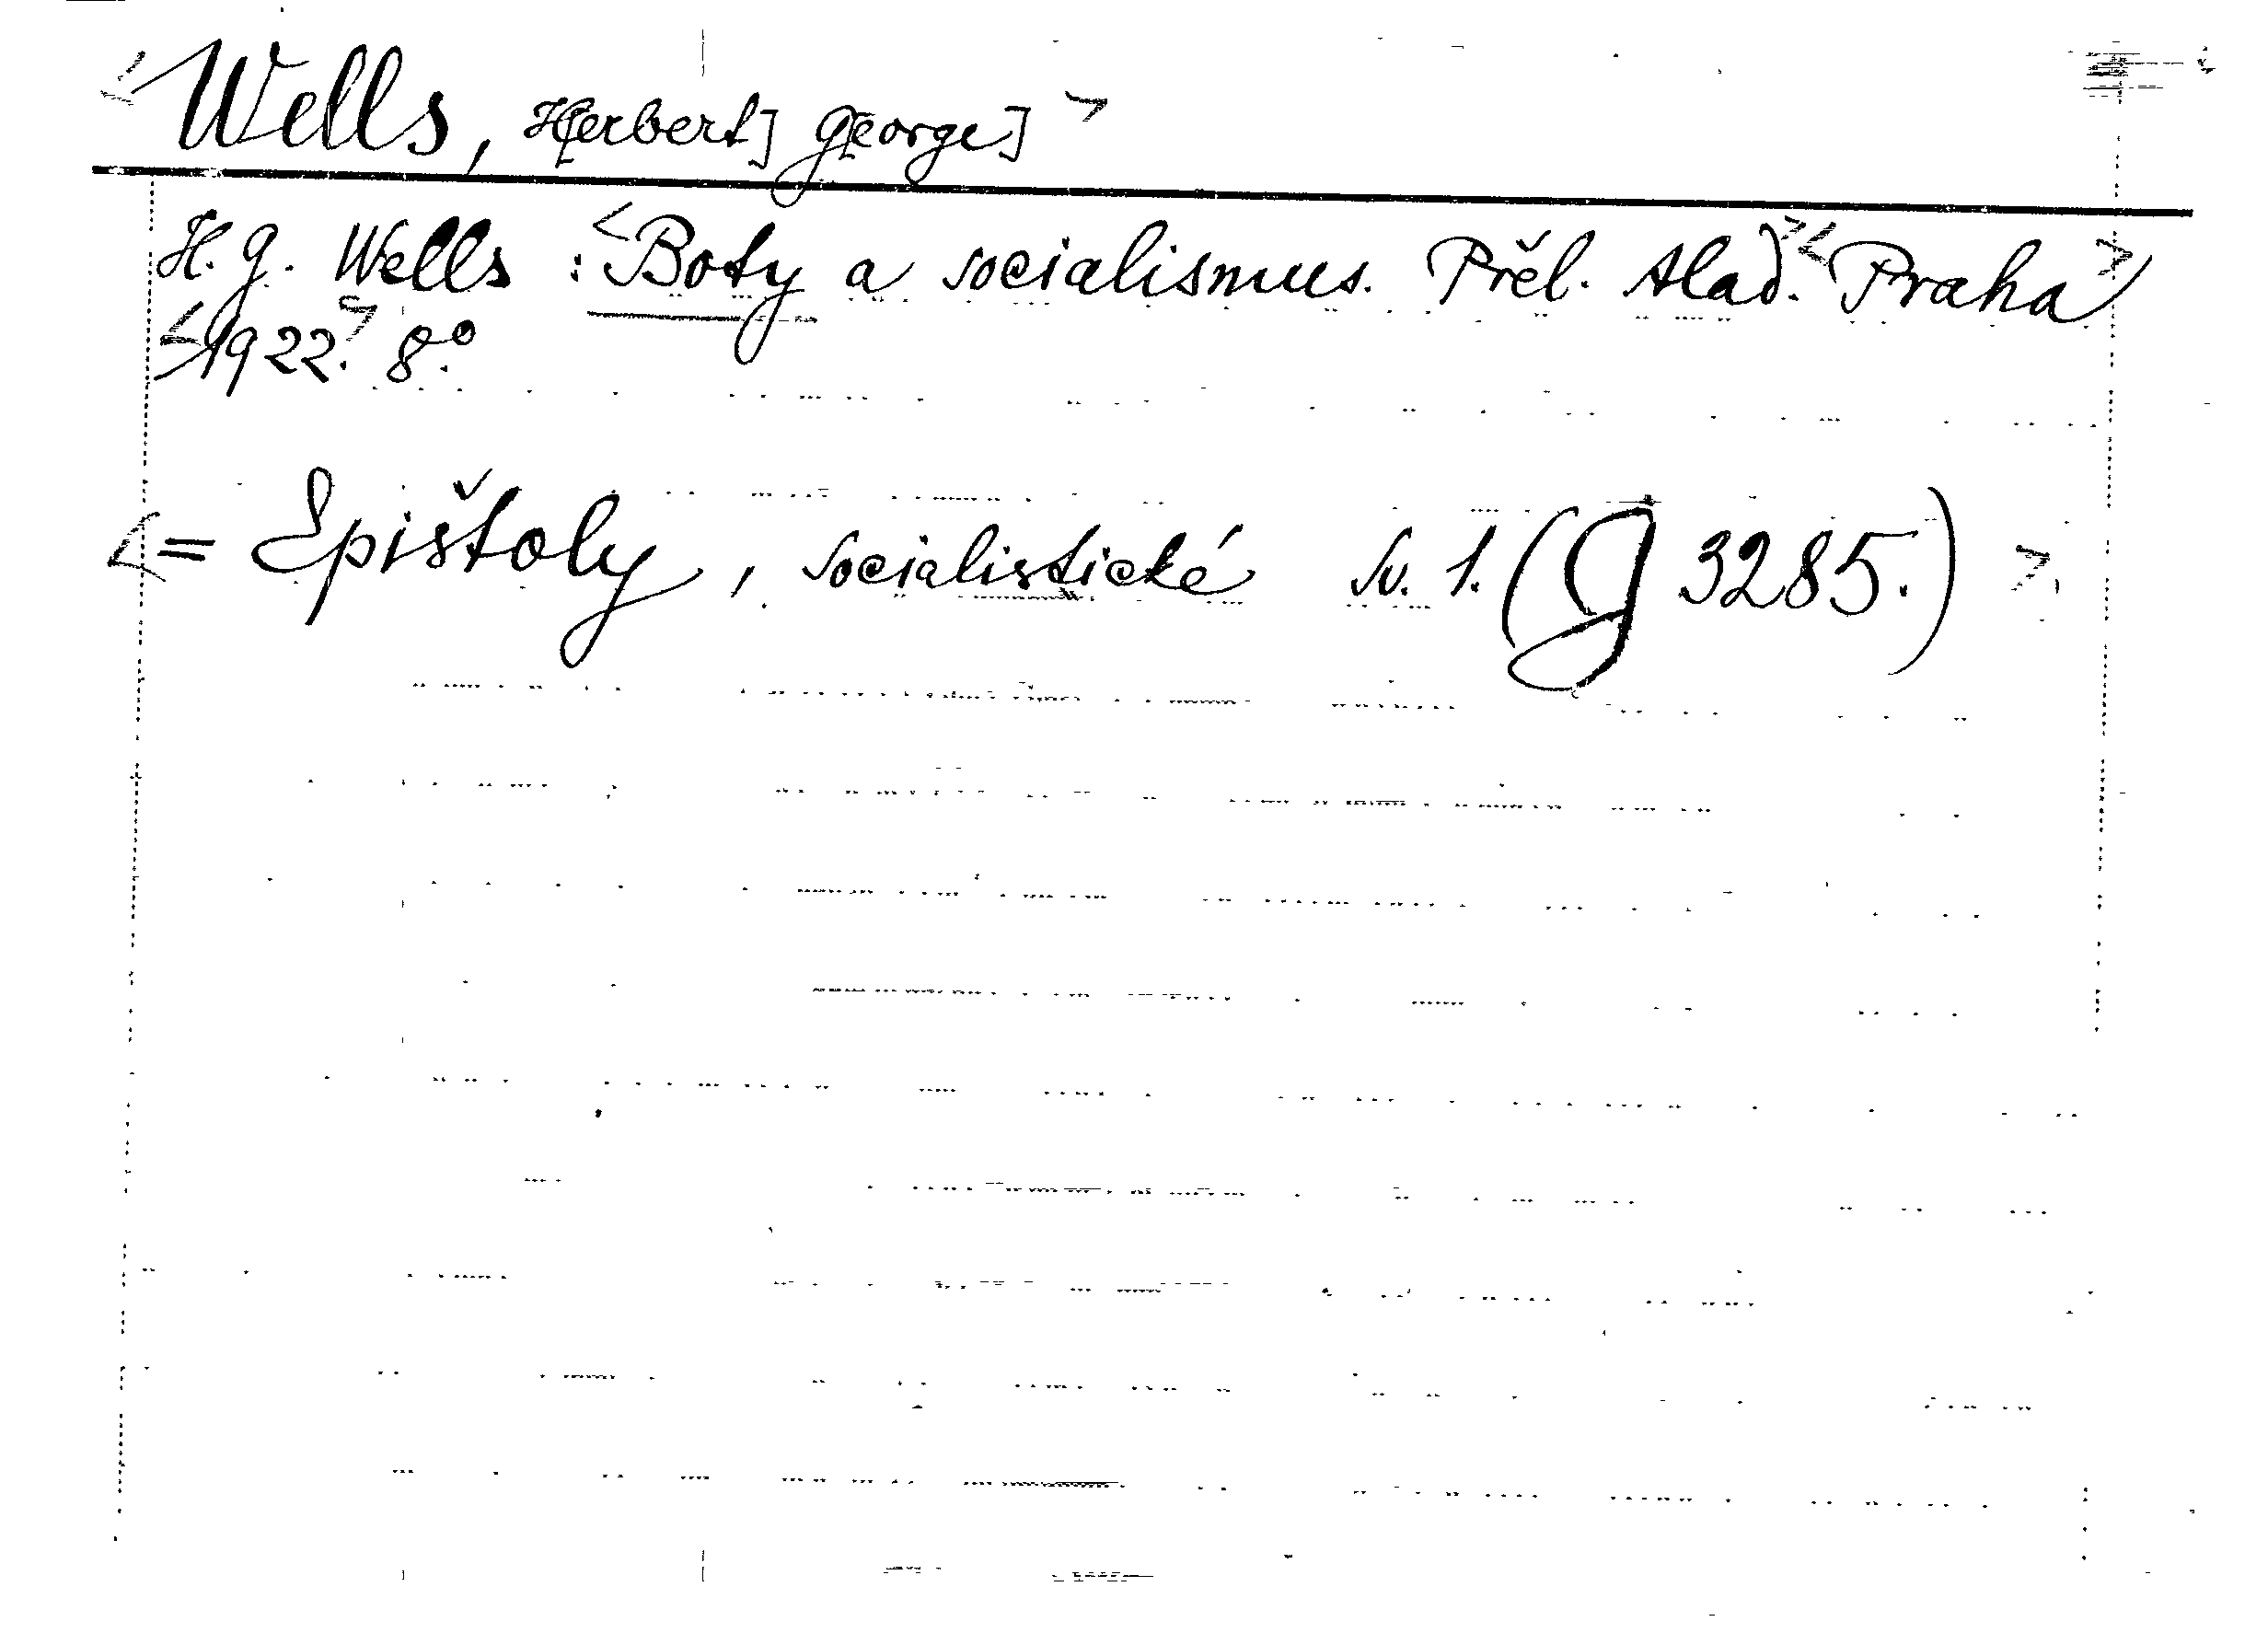 <Wells, H[erbert] G[eorge]>
H. G. Wells : <Boty a socialismus. Přel. Alad.> <Praha>
<1922.> 8.°
<= Epištoly, socialistické Sv. 1. (G 3285.)>